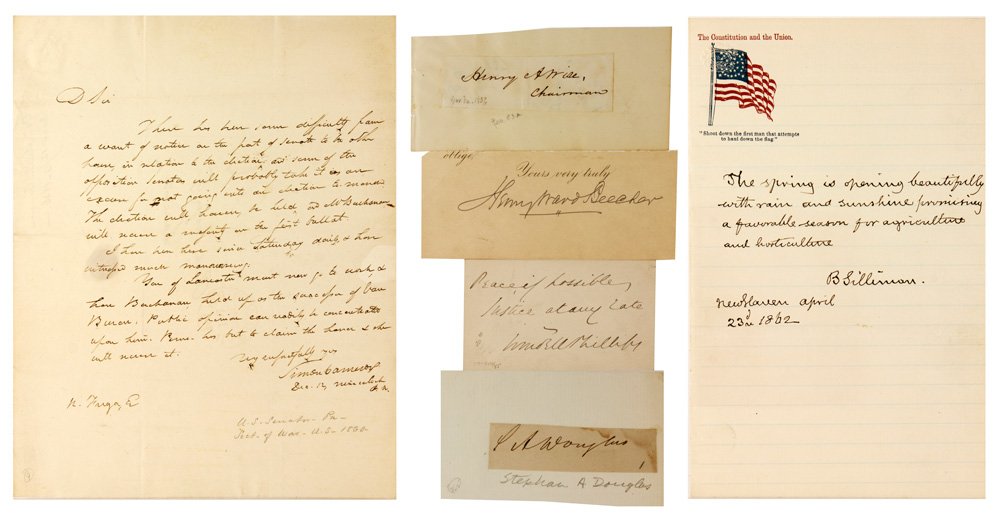 D Sir
There has been some difficulty from
a want of notice on the part of Senate to the other
house, in relation to the election, and some of the
opposition senators will probably take it as an
excuse for not going into an election to morrow
The election will however be held, and Mr Buchanan
will receive a majority on the first ballot
I have been here since Saturday daily & have
witnessed much manouvering.
You of Lancaster must now go to work, &
have Buchanan held up as the successor of Van
Buren. Public opinion can readily be concentrated
upon him. Penna. has but to claim the honor & she
will receive it.
Very respectfully yrs
Simon Cameron
Dec. 13,
R. Frazer, E
U.S. Senator - Pa -
Sect. of War - U.S. -
Henry A Wise,
Chairman
oblige,
Yours very truly
Henry Ward Beecher
Peace, if possible,
Justice at any rate
Wendell Phillips
S A Douglas
Stephan A Douglas
The Constitution and the Union.
"Shoot down the first man that attempts
to haul down the flag"
The spring is opening beautifully
with rain and sunshine promising
a favorable season for agriculture
and horticulture
B Silliman.
New Haven april
23d 1862